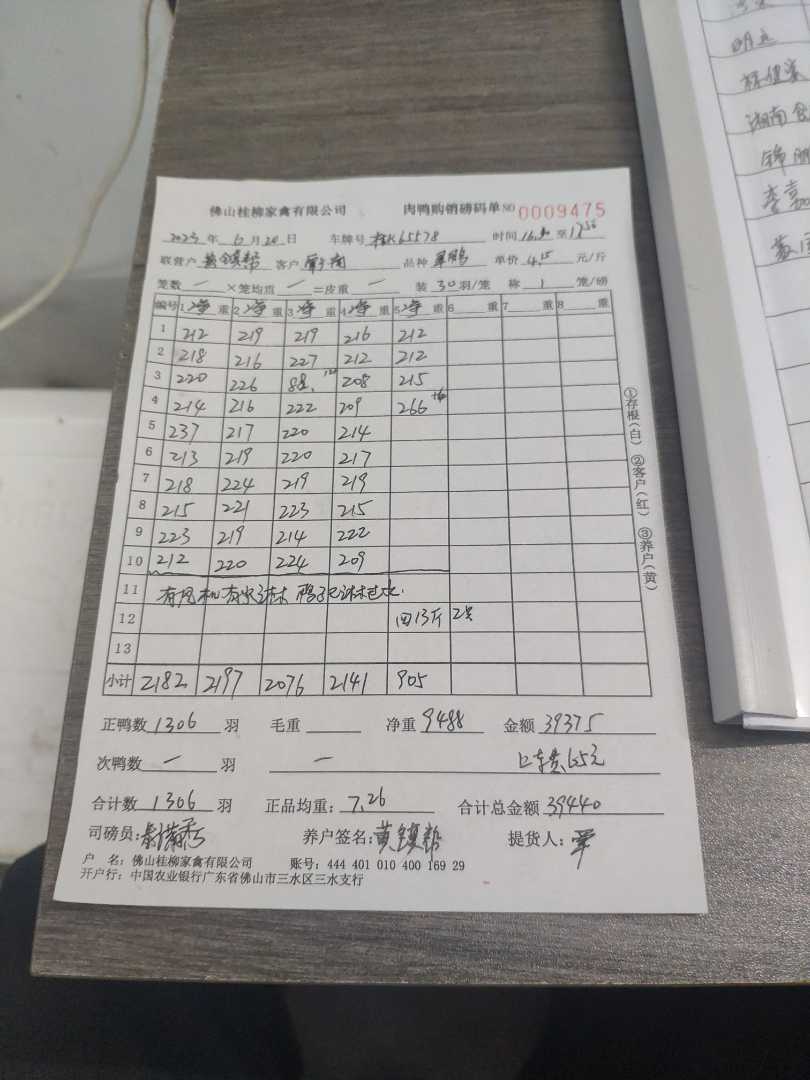 佛山桂柳家禽有限公司 肉鸭购销磅码单 NO 0009475
2023年6月20日 车牌号 桂K65578 时间16 至17
联营户 黄镇帮 客户 品种 单价4.15元/斤
笼数 一 ×笼均重 一 =皮重 一 装30羽/笼 称1笼/磅
编号 1净重 2净重 3净重 4净重 5净重 6重 7重 8重
1 212 219 219 216 212
2 218 216 227 212 212
3 220 226 88. 208 215
4 214 216 222 209 266
5 237 217 220 214
6 213 219 220 217
7 218 224 219 219
8 215 221 223 215
9 223 219 214 222
10 212 220 224 209
11 有风机 有
12 回13斤 2只
13
小计 2182 2197 2076 2141 905
正鸭数1306羽 毛重 净重9488 金额39375
次鸭数 一 羽 一 65元
合计数1306羽 正品均重:7.26 合计总金额39440
司磅员: 养户签名:黄镇帮 提货人:
户 名:佛山桂柳家禽有限公司 账号:444 401 010 400 169 29
开户行:中国农业银行广东省佛山市三水区三水支行
①存根(白) ②客户(红) ③养户(黄)
明
湖南食
锦鹏
李嘉